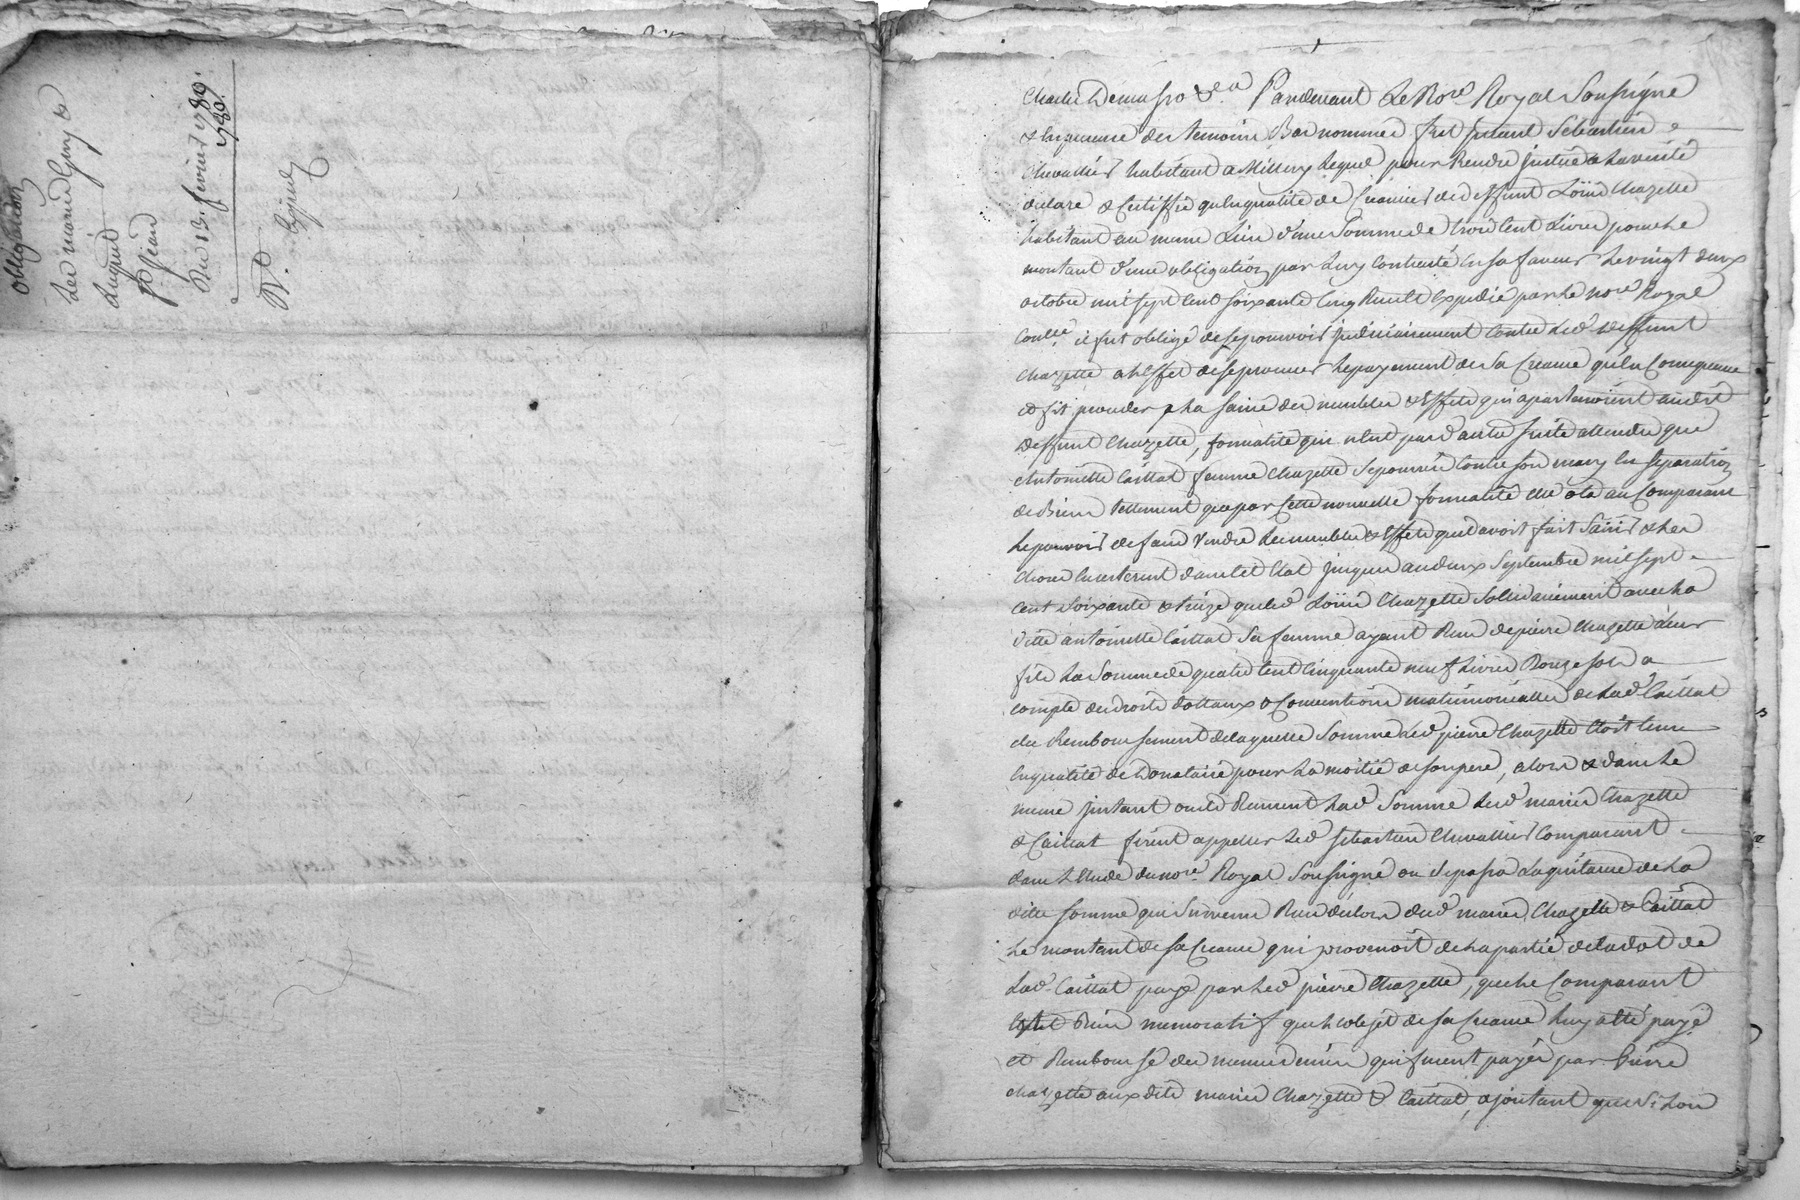 obligation
Les mariés Guy &
Luquet
pr Jean
Du 13. fevrier 1789.
1789.
Charles Demasso &a Pardevant Le Nore Royal Soussigné
& En presence des temoins Bas nommés fut present Sebastien
Chevallier habitant a Millery Lequel pour Rendre justice & La verité
declare & Certiffie qu'En qualité de Creancier de deffunt Loüis Chazette
habitant au meme Lieu d'une Somme de trois Cent Livres pour Le
montant d'une obligation par Luy Contractée En sa faveur Le vingt deux
octobre mil sept Cent Soixante Cinq Reçue & Expediée par Le nore Royal
il fut obligé de se pourvoir judiciairement Contre Led deffunt
Chazette a L'Effet de se procurer Le payement de sa Creance qu'En Consequence
il fit proceder a La saisie des meubles & Effets qui apartenoient audit
deffunt Chazette, formalité qui n'Eut pas d'autre suitte attendu que
Antoinette Caillat femme Chazette se pourvut Contre son mary En Separation
de Biens tellement que par Cette nouvelle formalité Elle ota au Comparant
Le pouvoir de faire vendre Les meubles & Effets qu'il avoit fait Saisir & Les
choses En resterent dans Cet Etat jusques au deux Septembre mil sept
cent soixante & treize que Led Loüis Chazette Solidairement avec La
ditte antoinette Caillat Sa femme ayant Reçu de pierre Chazette Leur
fils La Somme de quatre Cent Cinquante neuf Livres Sols a
compte des droits dottaux & Conventions matrimonialles de Lad Caillat
du Remboursement de laquelle Somme Led pierre Chazette Etoit tenu
En qualité de Donataire pour La moitié de son pere, alors & dans Le
meme instant ou ils Reçurent Lad Somme Lesd mariés Chazette
& Caillat firent appeller Led Sebastien Chevallier Comparant
dans L'Etude du nore Royal Soussigné ou Se passa La quittance de La
ditte somme qui Survenu Reçu deslors desd mariés Chazette & Caillat
Le montant de sa Creance qui provenoit de La partie de la dot de
Lad Caillat payé par Led pierre Chazette, que Le Comparant
Est Bien memoratif que L'objet de sa Creance Luy a Eté payé
et Remboursé des memes deniers qui furent payés par Pierre
chazette auxdits mariés Chazette & Caillat, ajoutant que Si Lon